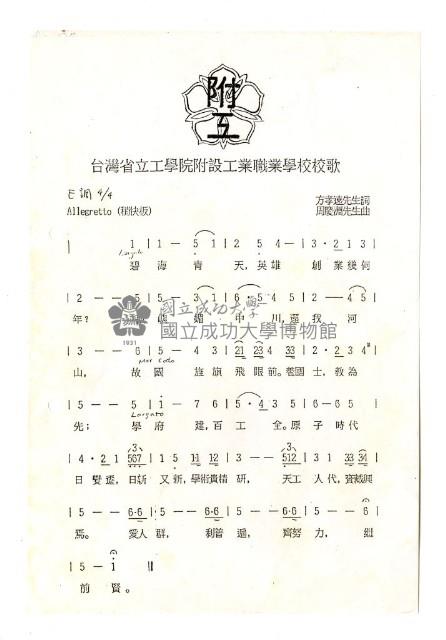 附工
台灣省立工學院附設工業職業學校校歌
E調 4/4
方孝遠先生詞
Allegretto (稍快板)
周慶淵先生曲
1 | 1 — 5 1 | 2 5 4 — | 3 · 2 1 3 |
碧 海 青 天, 英雄 創 業 幾何
2 — — 5 | 5 · 1 3 1 | 6 · 5 4 5 | 2 — 4 5 |
年? 中 川, 還 我 河
國立成功大學
國立成功大學博物館
1931
3 — — 6 | 5 — 4 3 | 21 23 4 33 | 2 — 2 3 4 |
山, 故 國 旌 旗 飛 眼 前。 國 士, 教 為
5 — — 5 | 1 — 7 6 | 5 · 4 3 5 | 6 — 6 5 |
Largato
先; 學 府 建, 百 工 全。 原 子 時 代
4 · 2 1 567 | 1 5 11 12 | 3 — — 512 | 3 1 33 34 |
日 變 遷, 日新 又 新, 學術貴精 研, 天工 人 代, 寶藏興
5 — — 6·6 | 5 — — 6·6 | 5 — — 6·6 | 5 — — 6 |
焉。 愛人 群, 利普 遍, 齊努 力, 繼
5 — 1 ||
前 賢。